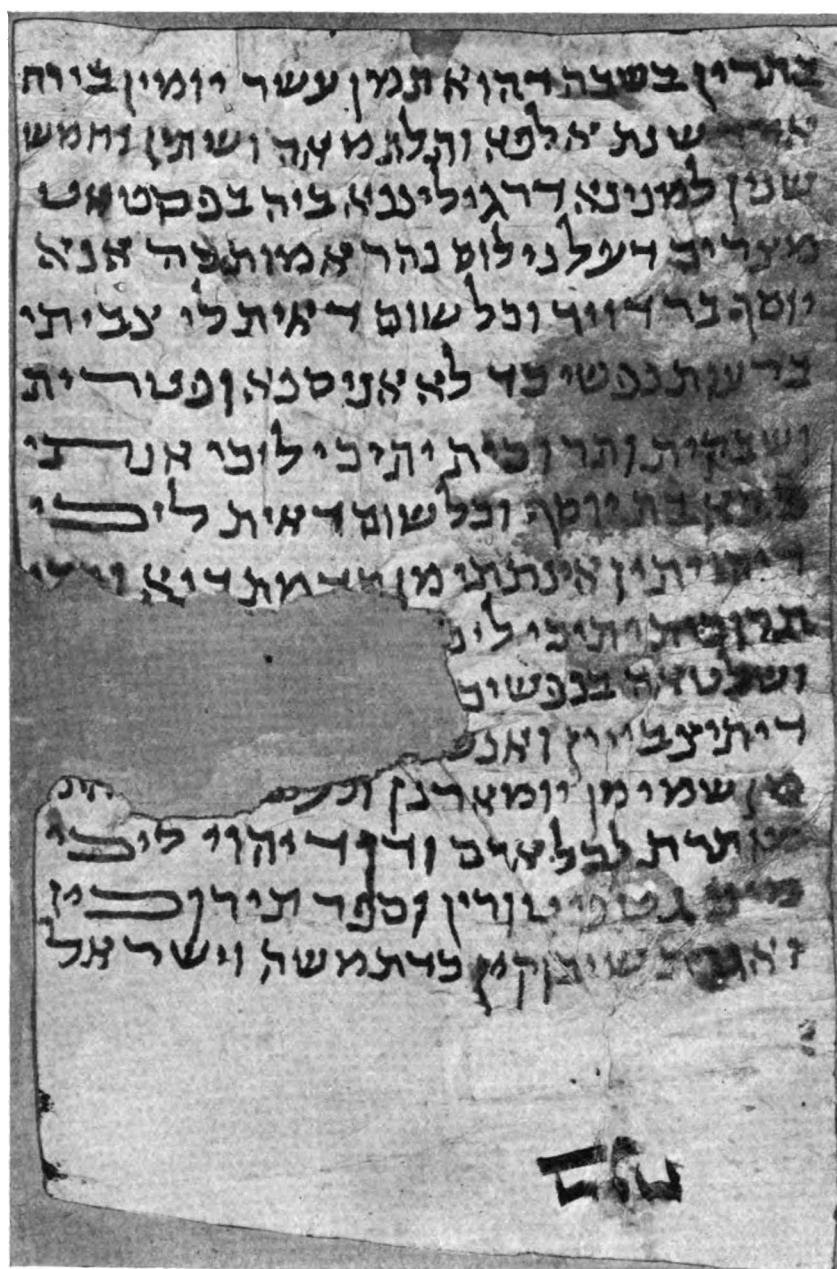 בתרין בשבה דהוא תמן עשר יומין בירח
שנת אלפא ותלתמאה ושיתין וחמש
שנין למנינא דרגילינא ביה בפסטאט
מצרים דעל נילוס נהרא מותבה אנא
יוסף בר דויד וכל שום דאית לי צביתי
ברעות נפשי כד לא אניסנא ופטרית
ושבקית ותרוכית יתיכי ליכי אנתי
בת יוסף וכל שום דאית ליכי
אינתתי מן
תרוכית יתיכי
ושלטאה בנפשיכ
דיתיצבייין ואנ
מן שמי מן יומא דנן
מותרת לכל אדם ודן דיהוי ליכי
גט פיטורין וספר תירוכין
ואגרת שיבוקין כדת משה וישראל